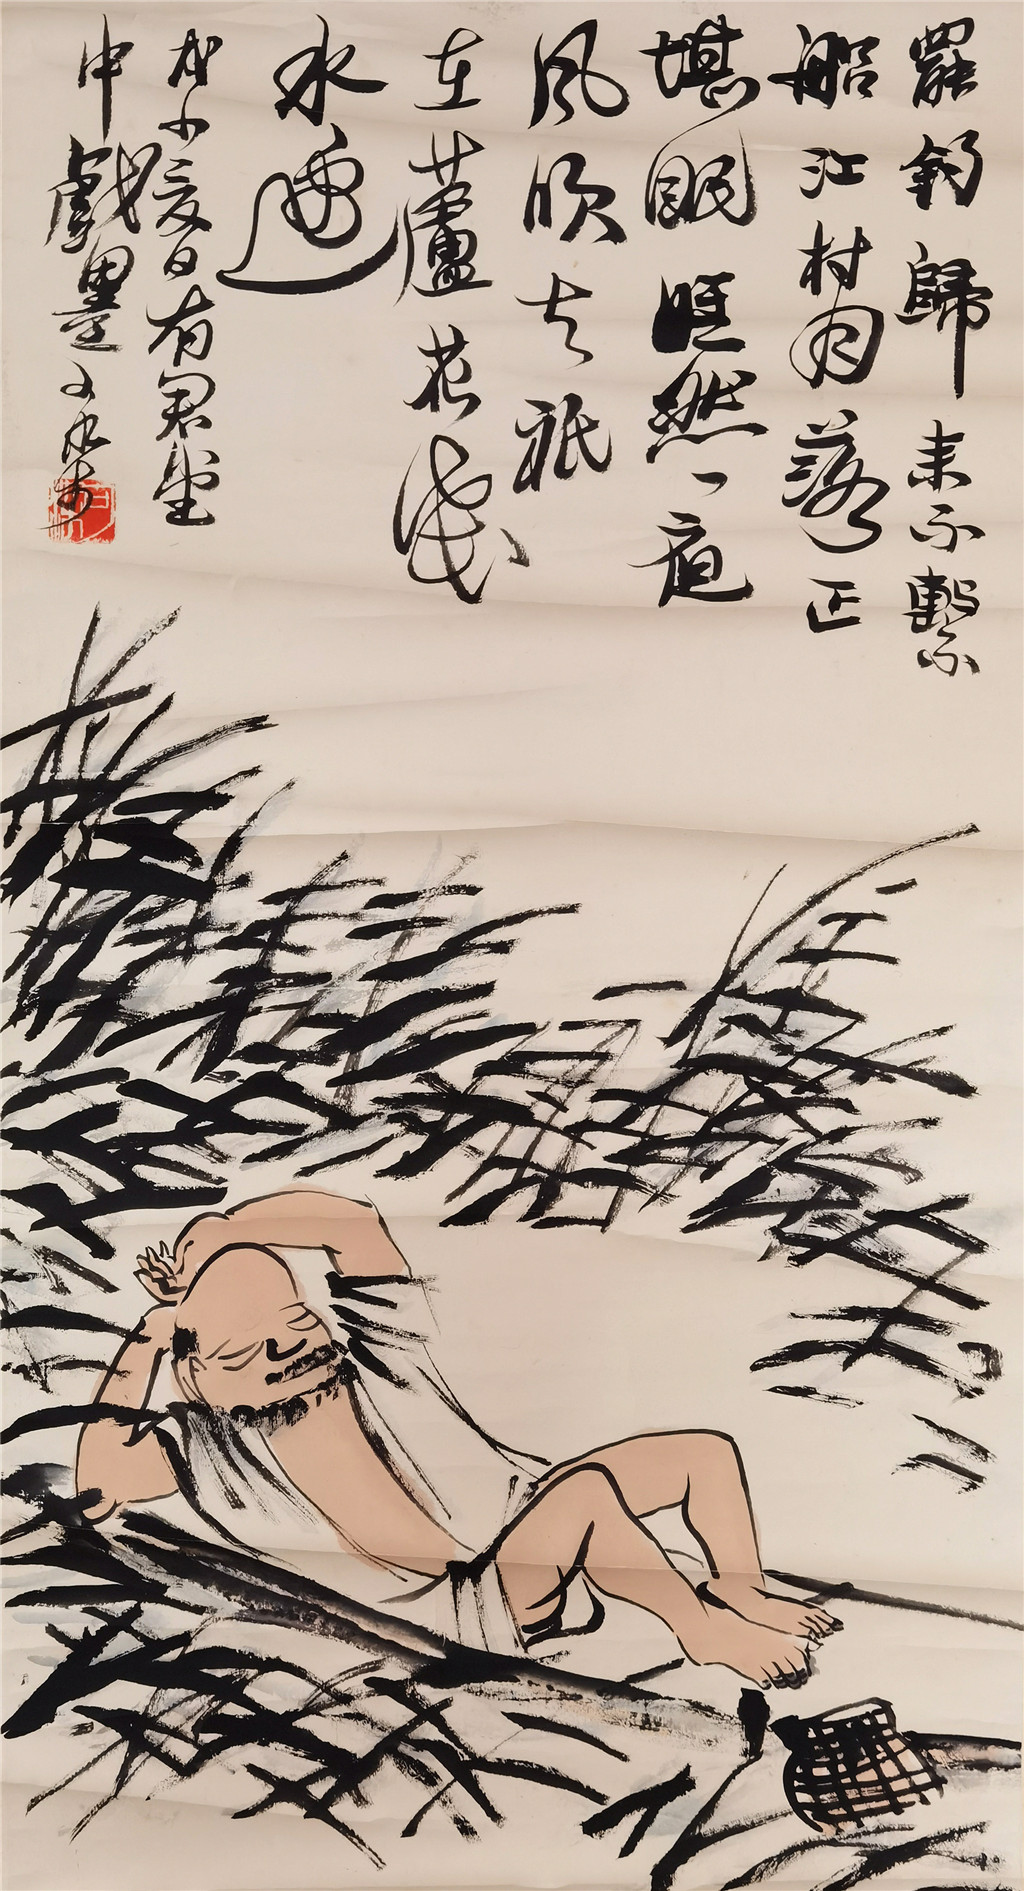 罷釣歸來不繫
船江村月落正
堪眠縱然一夜
風吹去祇
在蘆花淺
水邊
戊小夏日有君堂
中戲墨